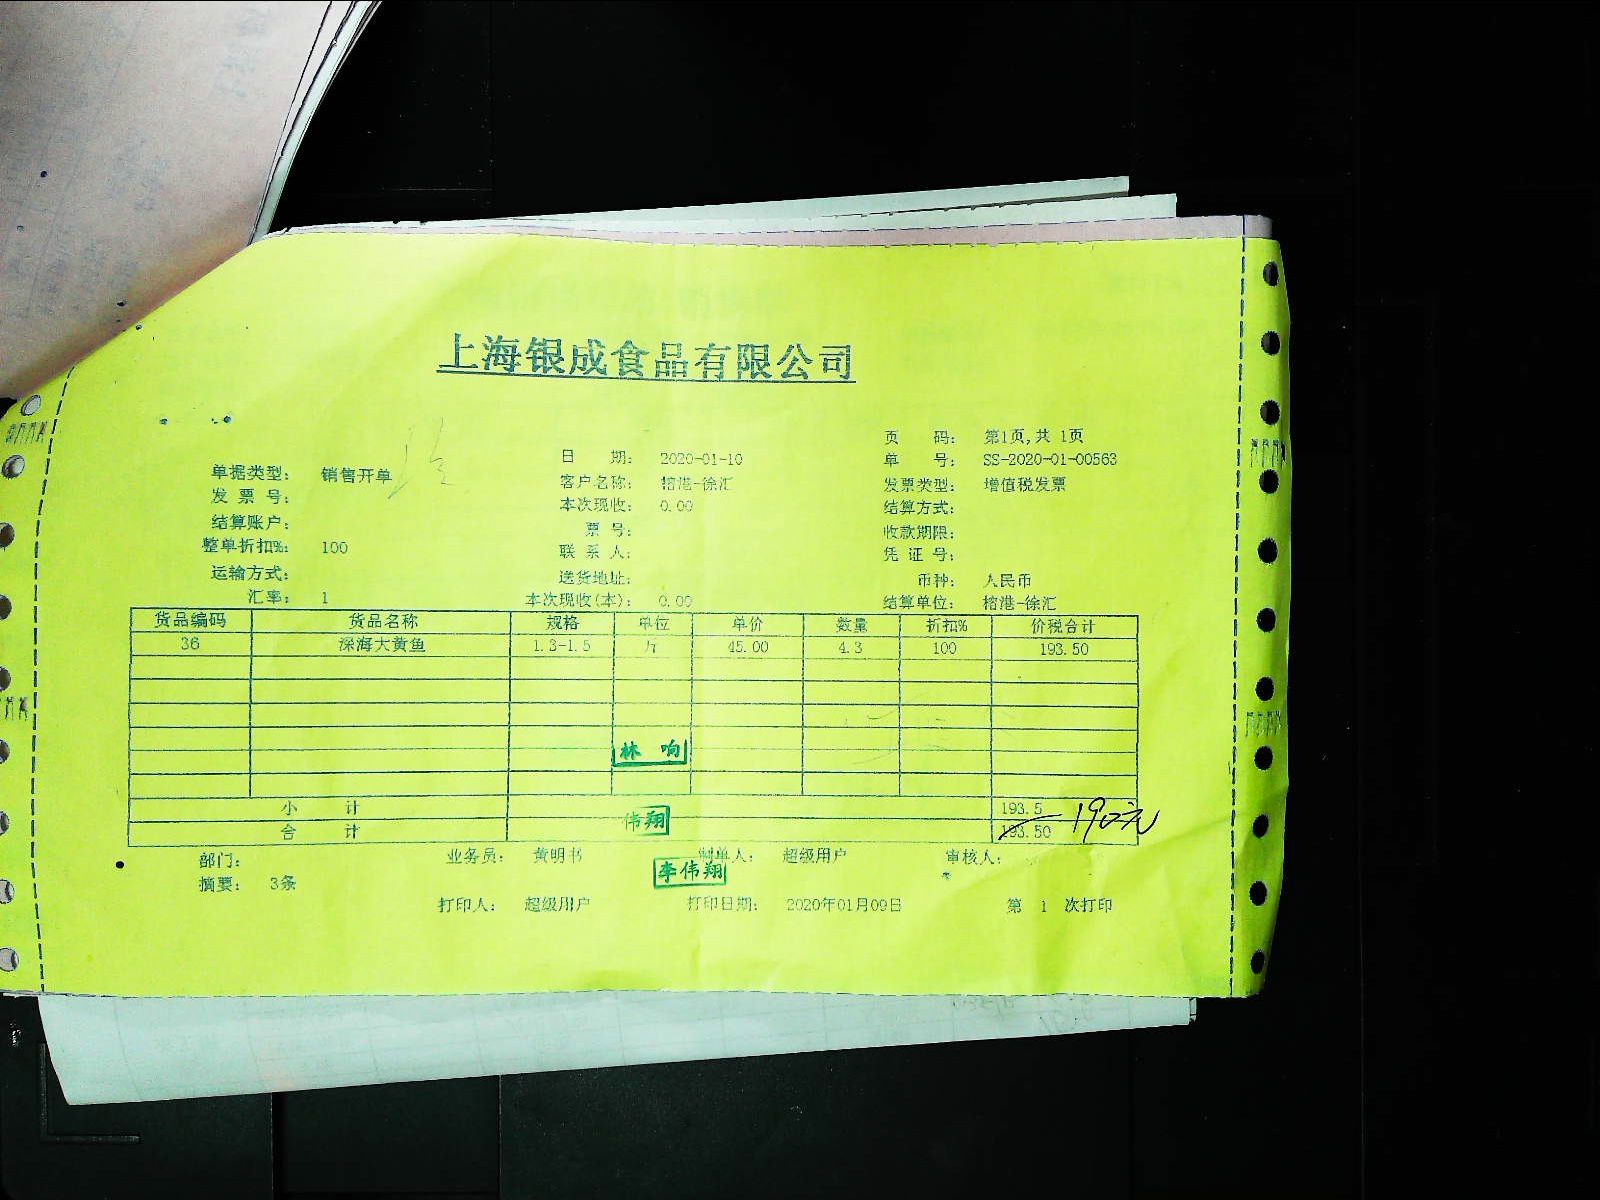 上海银成食品有限公司
页 码： 第1页,共 1页
日 期： 2020-01-10 单 号： SS-2020-01-00563
单据类型： 销售开单 客户名称： 榕港-徐汇 发票类型： 增值税发票
发 票 号： 本次现收： 0.00 结算方式：
结算账户： 票 号： 收款期限：
整单折扣%： 100 联 系 人： 凭 证 号：
运输方式： 送货地址： 币种： 人民币
汇率： 1 本次现收(本)： 0.00 结算单位： 榕港-徐汇
货品编码 货品名称 规格 单位 单价 数量 折扣% 价税合计
36 深海大黄鱼 1.3-1.5 斤 45.00 4.3 100 193.50
林 响
小 计 193.5
伟翔
合 计 193.50 190元
部门： 业务员： 黄明书 制单人： 超级用户 审核人：
李伟翔
摘要： 3条
打印人： 超级用户 打印日期： 2020年01月09日 第 1 次打印